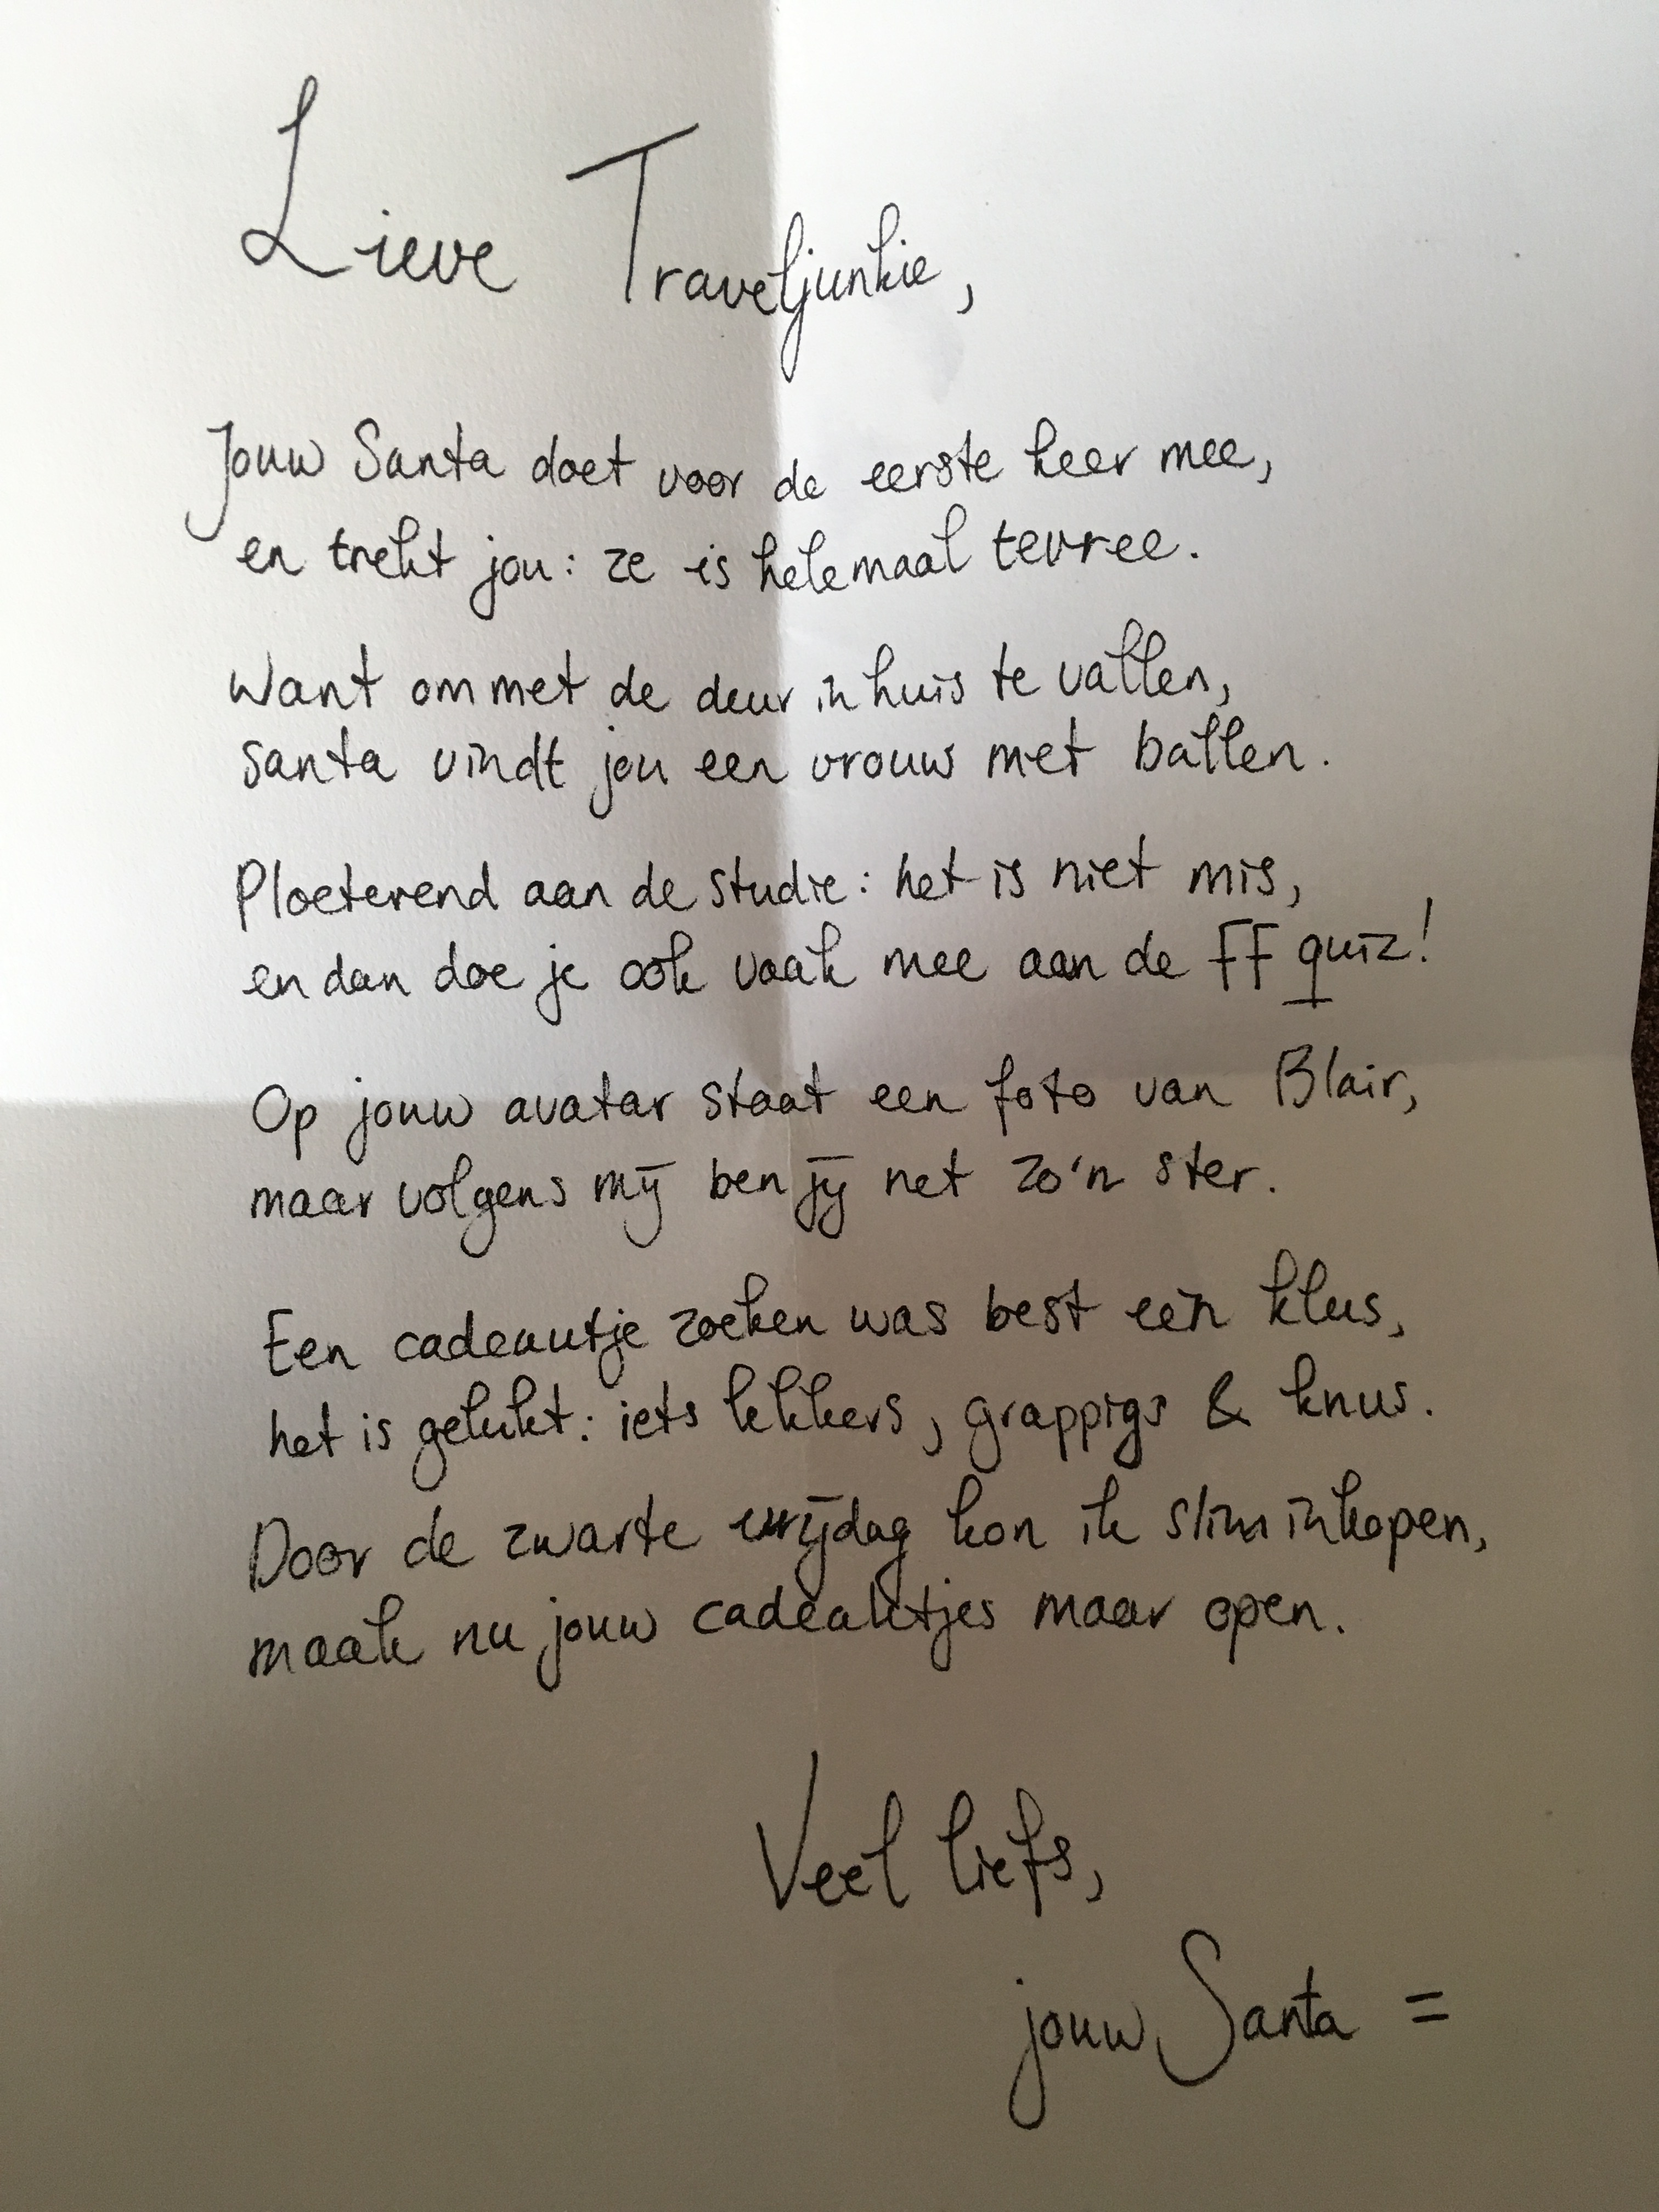 Lieve Traveljunkie,
Jouw Santa doet voor de eerste keer mee,
en trekt jou: ze is helemaal tevree.
Want om met de deur in huis te vallen,
Santa vindt jou een vrouw met ballen.
Ploeterend aan de studie: het is niet mis,
en dan doe je ook vaak mee aan de FF quiz!
Op jouw avatar staat een foto van Blair,
maar volgens mij ben jij net zo'n ster.
Een cadeautje zoeken was best een klus,
het is gelukt: iets lekkers, grappigs & knus.
Door de zwarte vrijdag kon ik slim inkopen,
maak nu jouw cadeautjes maar open.
Veel liefs,
jouw Santa =